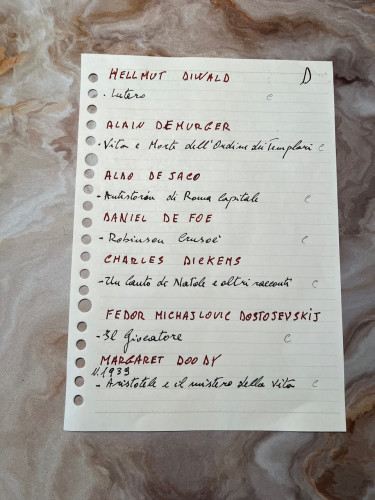 D
HELLMUT DIWALD
- Lutero c
ALAIN DEMURGER
- Vita e Morte dell'Ordine dei Templari c
ALDO DE JACO
- Antistoria di Roma Capitale c
DANIEL DE FOE
- Robinson Crusoè c
CHARLES DICKENS
- Un Canto di Natale e altri racconti c
FEDOR MICHAJLOVIC DOSTOJEVSKIJ
- Il Giocatore c
MARGARET DOODY
N. 1939
- Aristotele e il mistero della Vita c